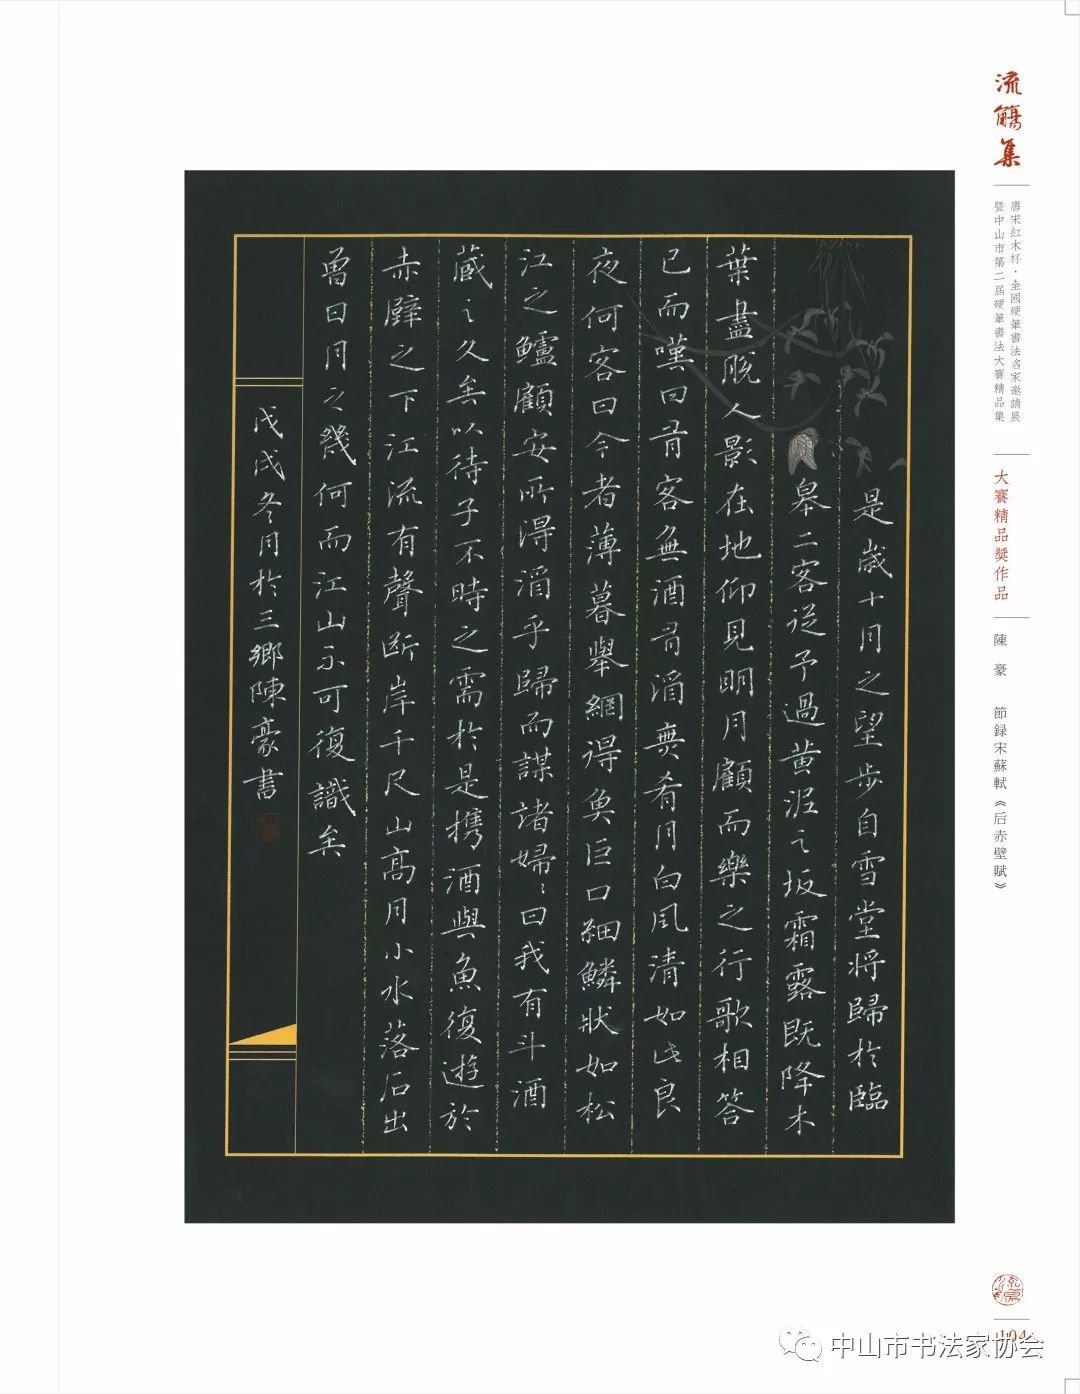 流觴集
唐宋紅木杯·全國硬筆書法名家邀請展
暨中山市第二屆硬筆書法大賽精品集
大賽精品獎作品
陳豪 節録宋蘇軾《后赤壁賦》
是歲十月之望步自雪堂將歸於臨
皋二客從予過黄泥之坂霜露既降木
葉盡脫人影在地仰見明月顧而樂之行歌相答
已而嘆曰有客無酒有酒無肴月白風清如此良
夜何客曰今者薄暮舉網得魚巨口細鱗狀如松
江之鱸顧安所得酒乎歸而謀諸婦〻曰我有斗酒
藏之久矣以待子不時之需於是携酒與魚復遊於
赤壁之下江流有聲断岸千尺山高月小水落石出
曾日月之幾何而江山不可復識矣
戊戌冬月於三鄉陳豪書
104
中山市书法家协会